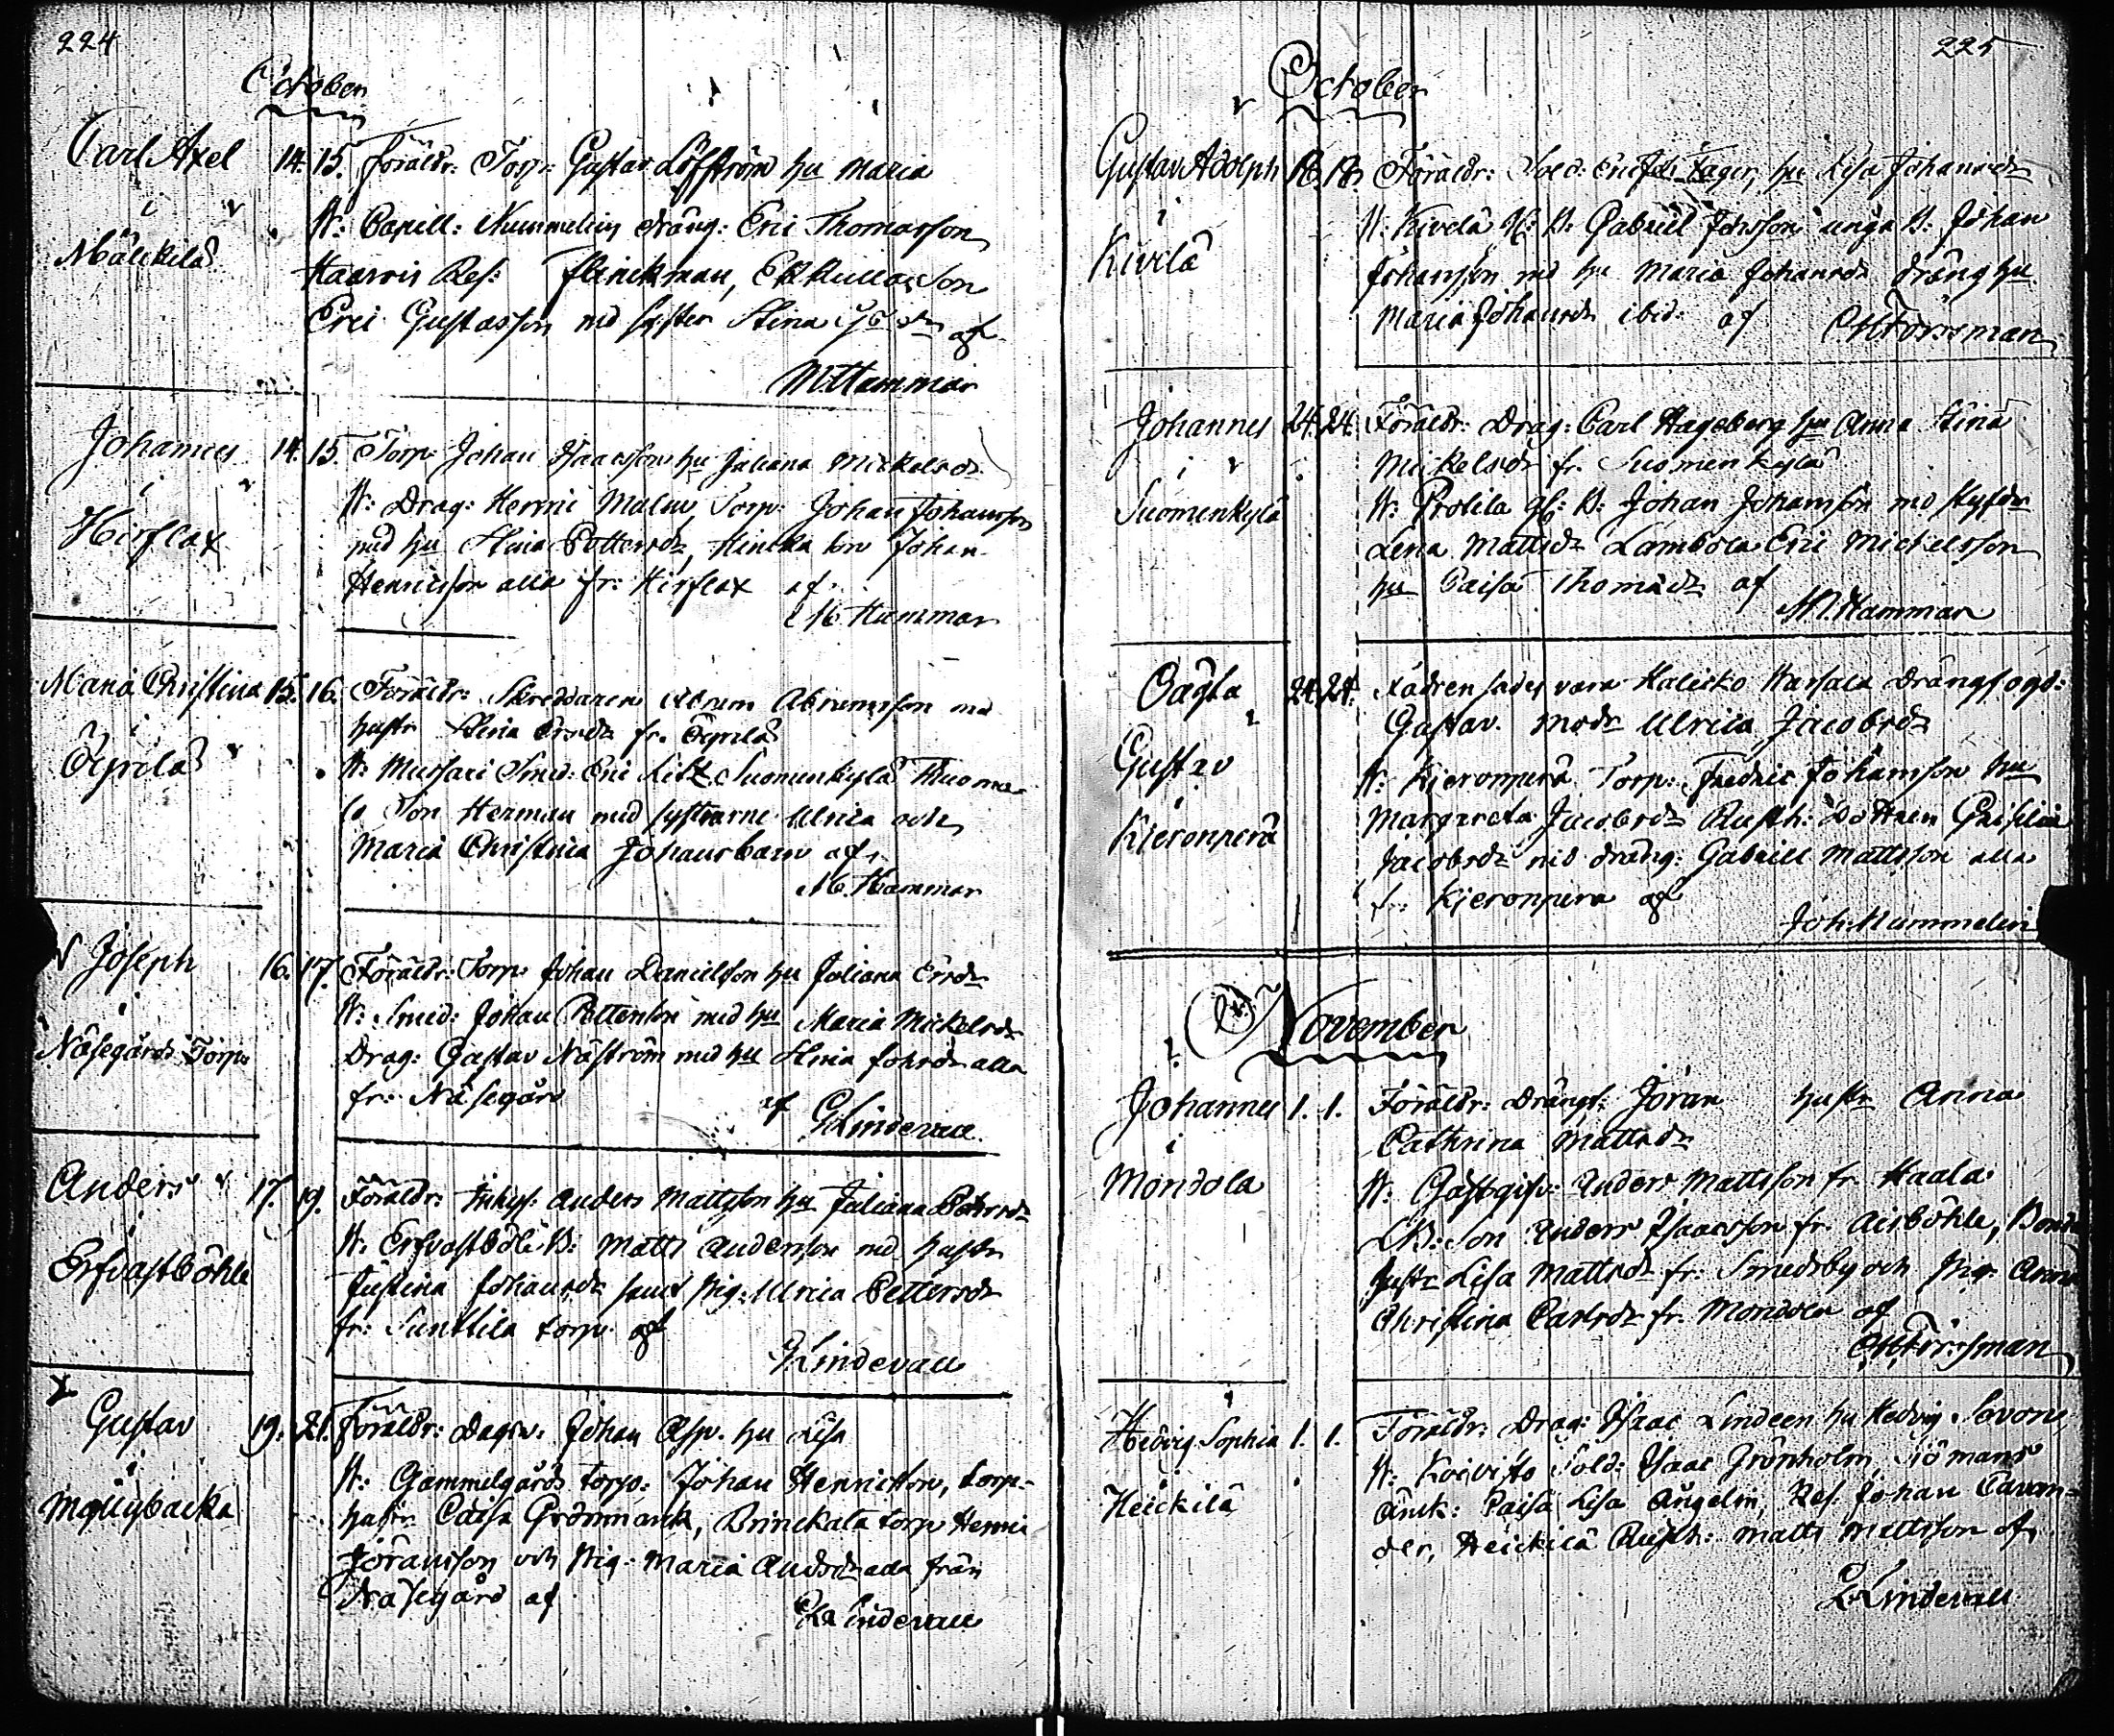 224
October
Carl Axel 14. 15. Föräldr: Torp: Gustav Löfström hu Maria
i
Mälckilä
W: Capell: Nummelin dräng: Eric Thomasson
Haarvis Ref: Flinckman, Son
Eric Gustafsson md syster Stina af
M. Hammar
Johannes 14. 15. Torp: Johan Isaacsson hu Juliana Mickelsdr
i
Hirflax
W: Drag: Henric Malm, Torp: Johan Johansson
med hu Stina Pettersdr, son Johan
Henricsson alla fr: Hirflax af
M. Hammar
Maria Christina 15. 16. Föräldr: Skreddaren Abram Abramsson md
i
hustr Stina Ersdr fr.
W: Smed: Eric Suomenkylä
Son Herman med systrarne Ulrica och
Maria Christina Johansbarn af
M. Hammar
Joseph 16. 17. Föräldr: Torp: Johan Danielsson hu Juliana Ersdr
i
Näsegårds Torp
W: Smed: Johan Pettersson med hu Maria Mickelsdr
Drag: Gustav Näström med hu Stina Johsdr alla
fr: Näsegård af
G Lindevall
Anders 17. 19. Föräldr: Inhys: Anders Mattsson hu Juliana Petersdr
i
Erfvastböhle
W: Erfvastböle B: Matts Andersson md hustr
Justina Johansdr samt Pig: Ulrica Pettersdr
fr: Sunttila torp af
G Lindevall
Gustav 19. 21. Föräldr: Dagsv: Johan Asp. hu Lisa
i
W: Gammelgårds torp: Johan Henricsson, torp-
hustr Caisa Grönmark, Brinckala torp Henric
Jöransson och Pig: Maria Andsdr alla från
Näsegård af
G Lindevall
225
October
Gustav Adolph 18. 18. Föräldr: Sold: Eric Joh: Fager, hu Lisa Johansdr
i
Kivelä
W: Kivelä B: Gabriel Johsson unga B: Johan
Johansson md hu Maria Johansdr dräng hu
Maria Johansdr ibid: af Forssman
Johannes 24. 24. Föräldr: Drag: Carl Hageberg hu Anna Stina
i
Suomenkylä
Mickelsdr fr. Suomenkylä
W: Prolila B: Johan Johansson md styfdr
Lena Mattsdr Lambola Eric Mickelsson
hu Caisa Thomädr af
M. Hammar
Oägta 24. 24. Fadren sades vara Haliko Karsala drängfogd:
Gustav
i
Kieronperä
Gustav. modr Ulrica Jacobsdr
W: Kieronperä Torp: Fredric Johansson hu
Margareta Jacobsdr Rusth: Dottren
Jacobsdr md dräng: Gabriel Mattsson alla
fr: Kieronpera af
Joh: Nummelin
November
Johannes 1. 1. Föräldr: Drängf: Jöran hustr Anna
i
Mondola
Cathrina Mattsdr
W: Gästgifv: Anders Mattsson fr Haala
Son Anders Isaacsson fr. Aisböhle, Bonde
hustr Lisa Mattsdr fr: Smedsby och Pig: Anna
Christina Carlsdr fr. Mondola af
Forssman
Hedvig Sophia 1. 1. Föräldr: Drag: Isaac Lindeen hu Hedvig Savon
i
Heickilä
W: Koivisto Sold: Isaac Grönholm, Siömans
änk: Caisa Lisa Ångelin, Ref: Johan Cavan-
der, Heickilä Rusth: Matts Mattsson af
G Lindevall